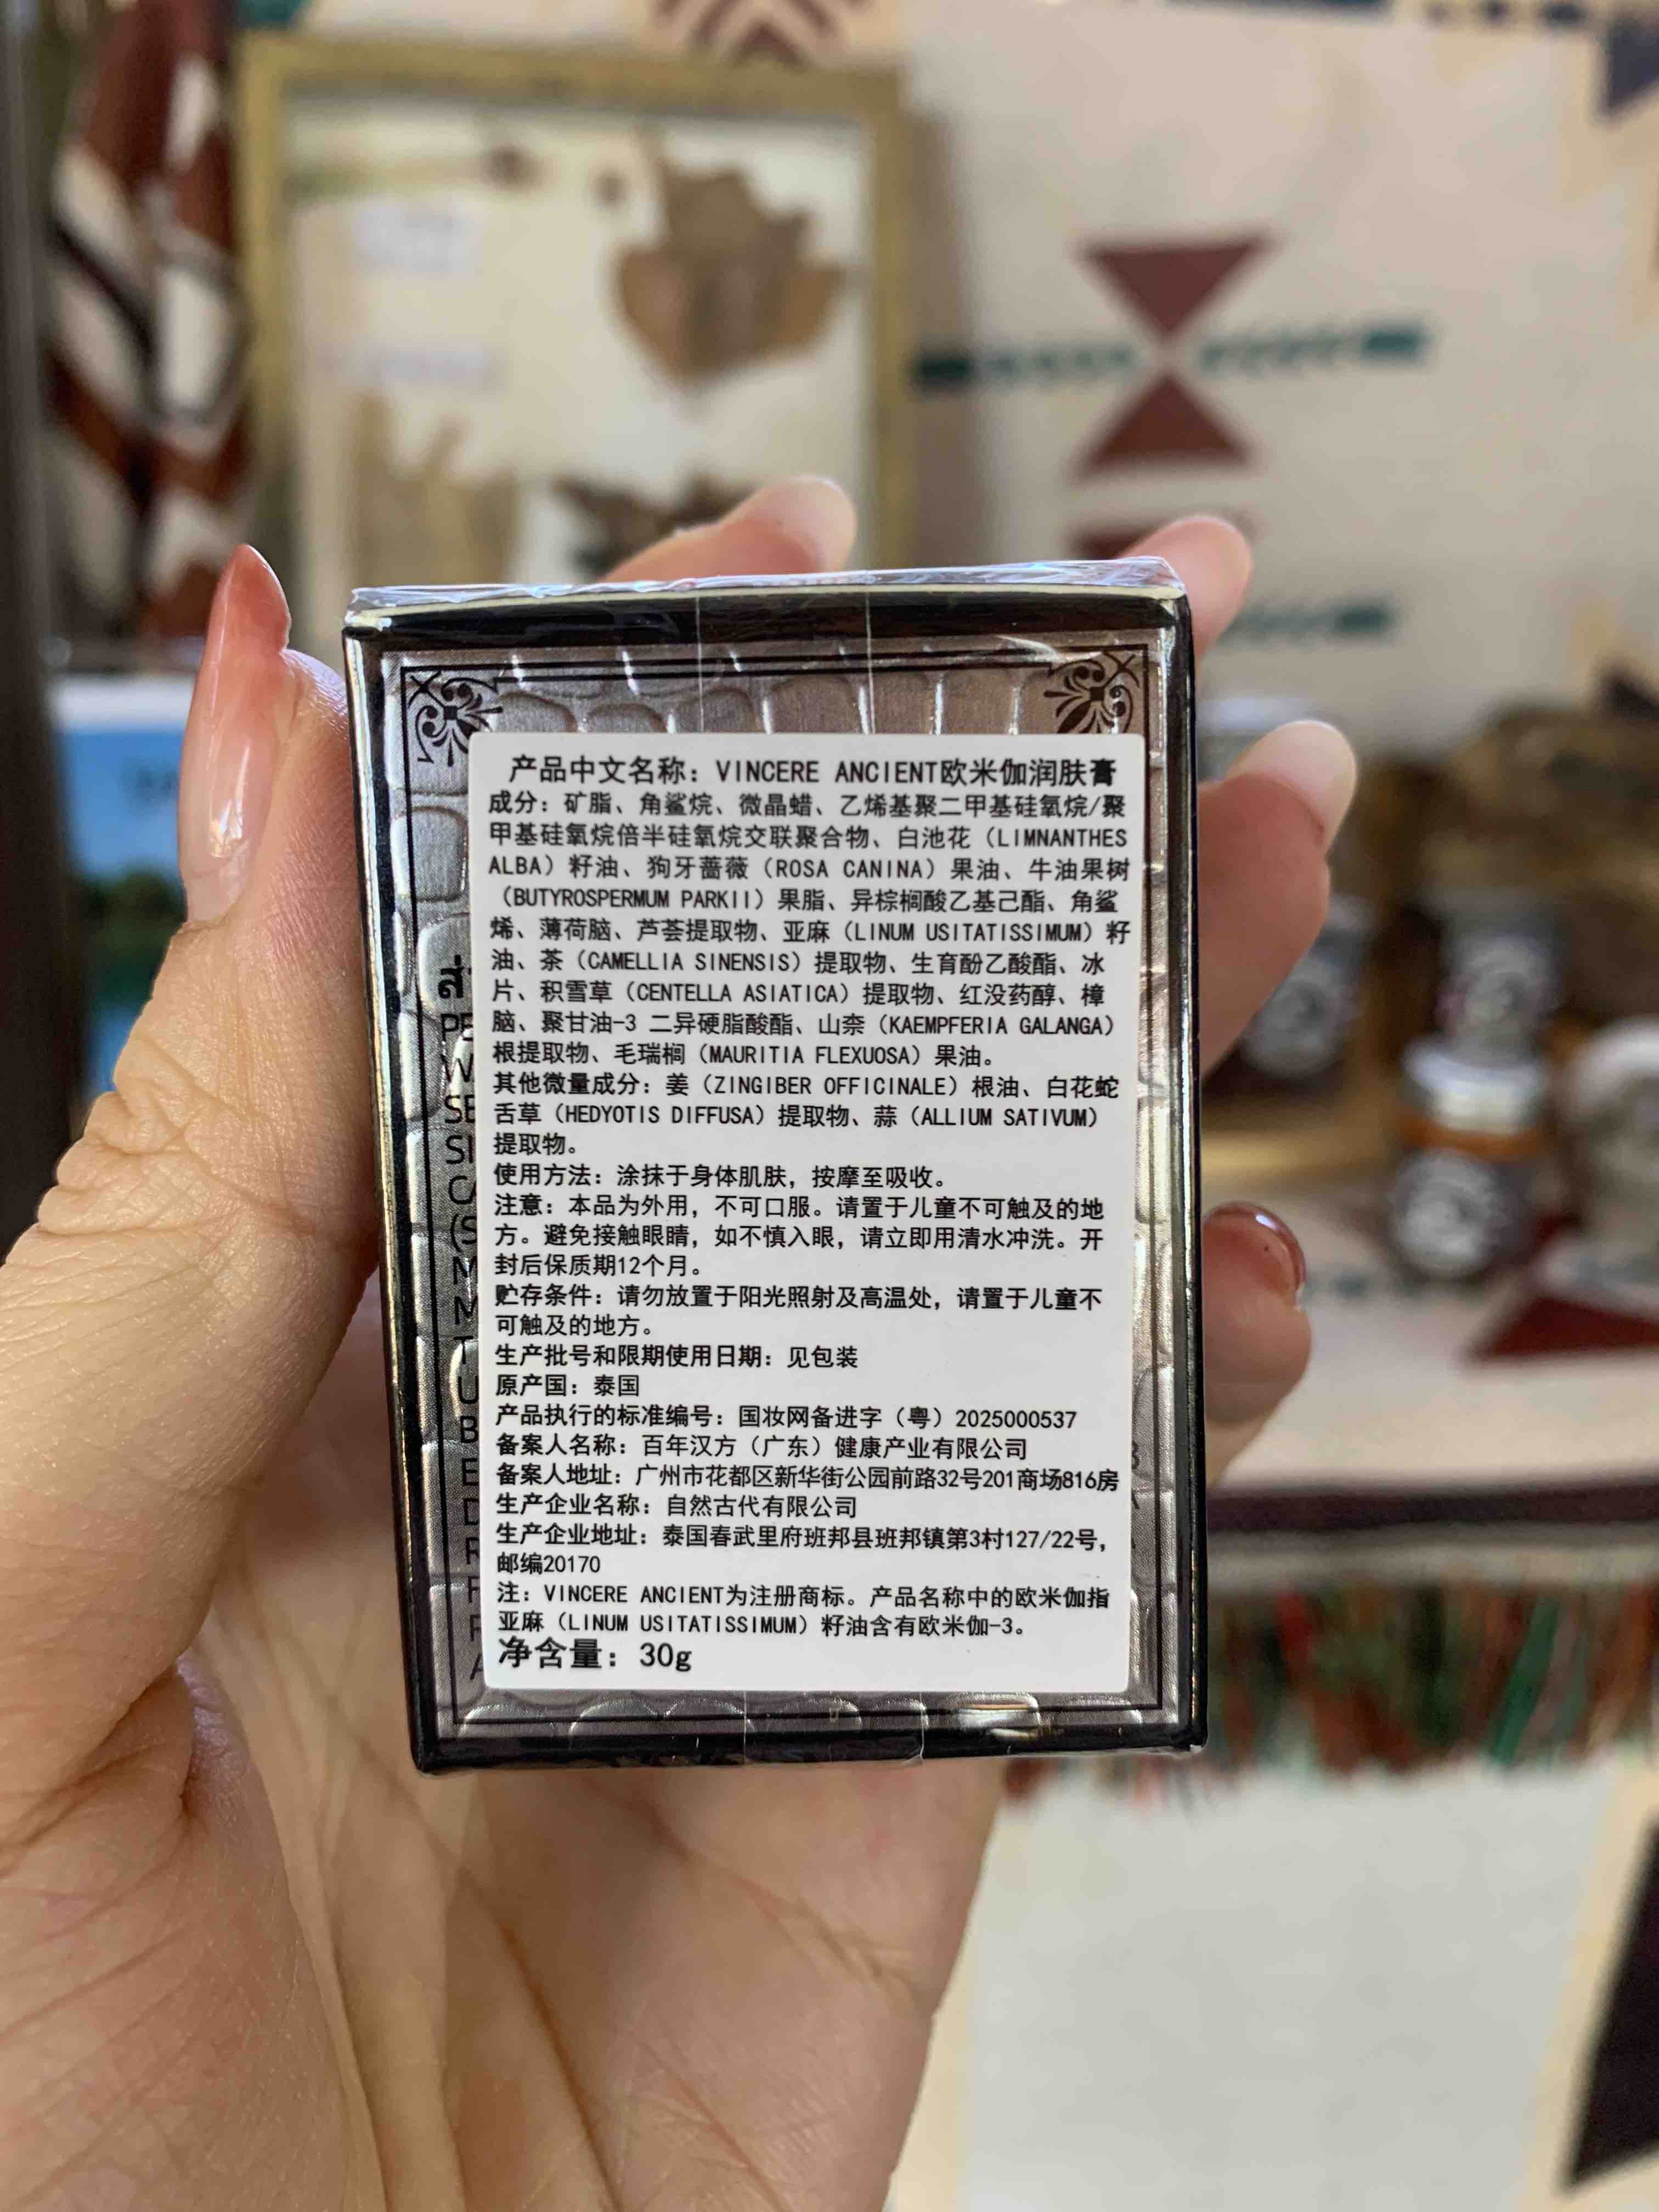 产品中文名称：VINCERE ANCIENT欧米伽润肤膏
成分：矿脂、角鲨烷、微晶蜡、乙烯基聚二甲基硅氧烷/聚
甲基硅氧烷倍半硅氧烷交联聚合物、白池花（LIMNANTHES
ALBA）籽油、狗牙蔷薇（ROSA CANINA）果油、牛油果树
（BUTYROSPERMUM PARKII）果脂、异棕榈酸乙基己酯、角鲨
烯、薄荷脑、芦荟提取物、亚麻（LINUM USITATISSIMUM）籽
油、茶（CAMELLIA SINENSIS）提取物、生育酚乙酸酯、冰
片、积雪草（CENTELLA ASIATICA）提取物、红没药醇、樟
脑、聚甘油-3 二异硬脂酸酯、山柰（KAEMPFERIA GALANGA）
根提取物、毛瑞榈（MAURITIA FLEXUOSA）果油。
其他微量成分：姜（ZINGIBER OFFICINALE）根油、白花蛇
舌草（HEDYOTIS DIFFUSA）提取物、蒜（ALLIUM SATIVUM）
提取物。
使用方法：涂抹于身体肌肤，按摩至吸收。
注意：本品为外用，不可口服。请置于儿童不可触及的地
方。避免接触眼睛，如不慎入眼，请立即用清水冲洗。开
封后保质期12个月。
贮存条件：请勿放置于阳光照射及高温处，请置于儿童不
可触及的地方。
生产批号和限期使用日期：见包装
原产国：泰国
产品执行的标准编号：国妆网备进字（粤）2025000537
备案人名称：百年汉方（广东）健康产业有限公司
备案人地址：广州市花都区新华街公园前路32号201商场816房
生产企业名称：自然古代有限公司
生产企业地址：泰国春武里府班邦县班邦镇第3村127/22号，
邮编20170
注：VINCERE ANCIENT为注册商标。产品名称中的欧米伽指
亚麻（LINUM USITATISSIMUM）籽油含有欧米伽-3。
净含量：30g